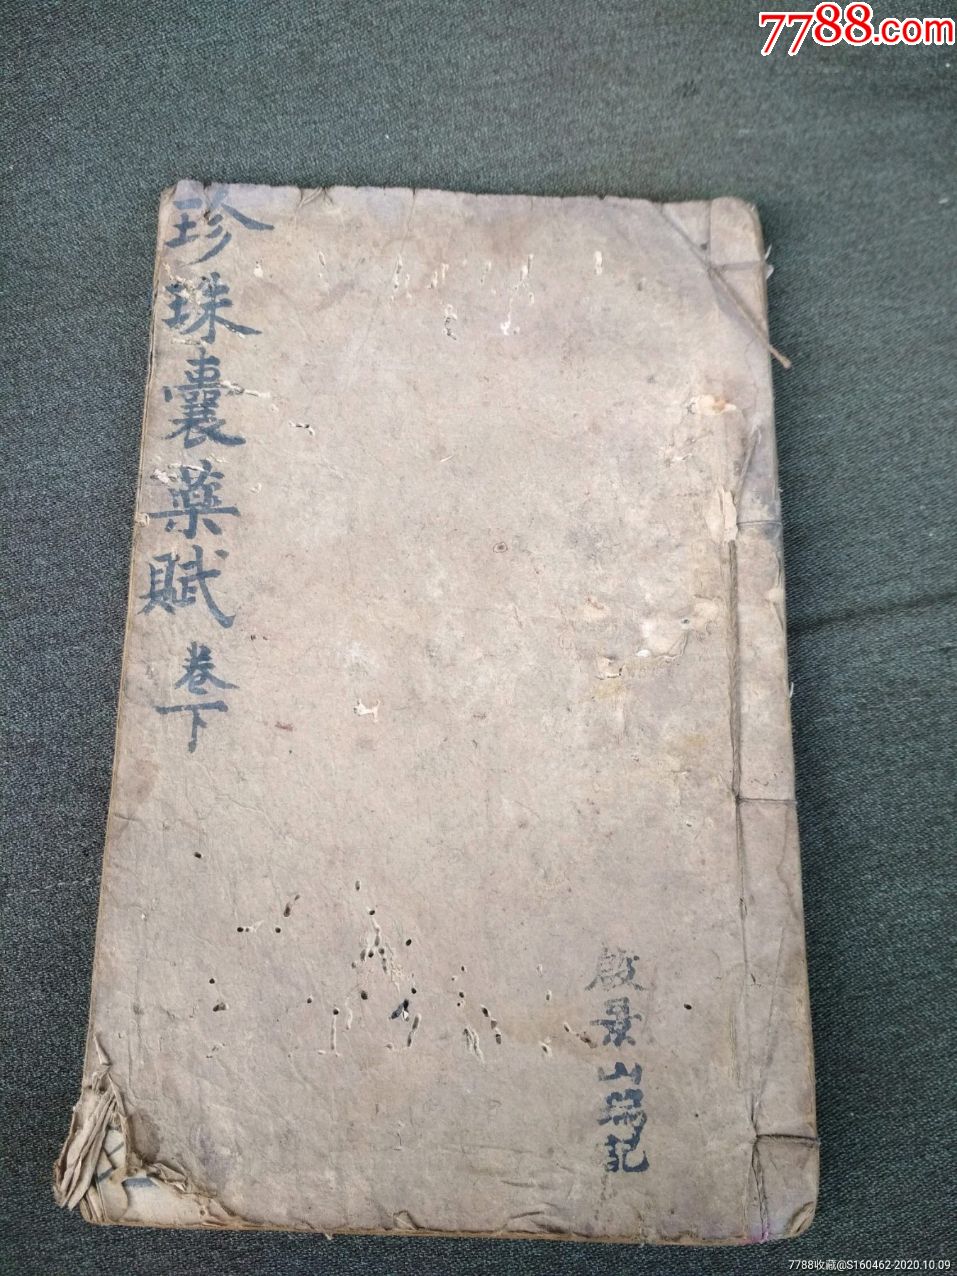 7788.com
珍珠囊藥賦
卷下
殷景山

记
7788收藏@S160462-2020.10.09